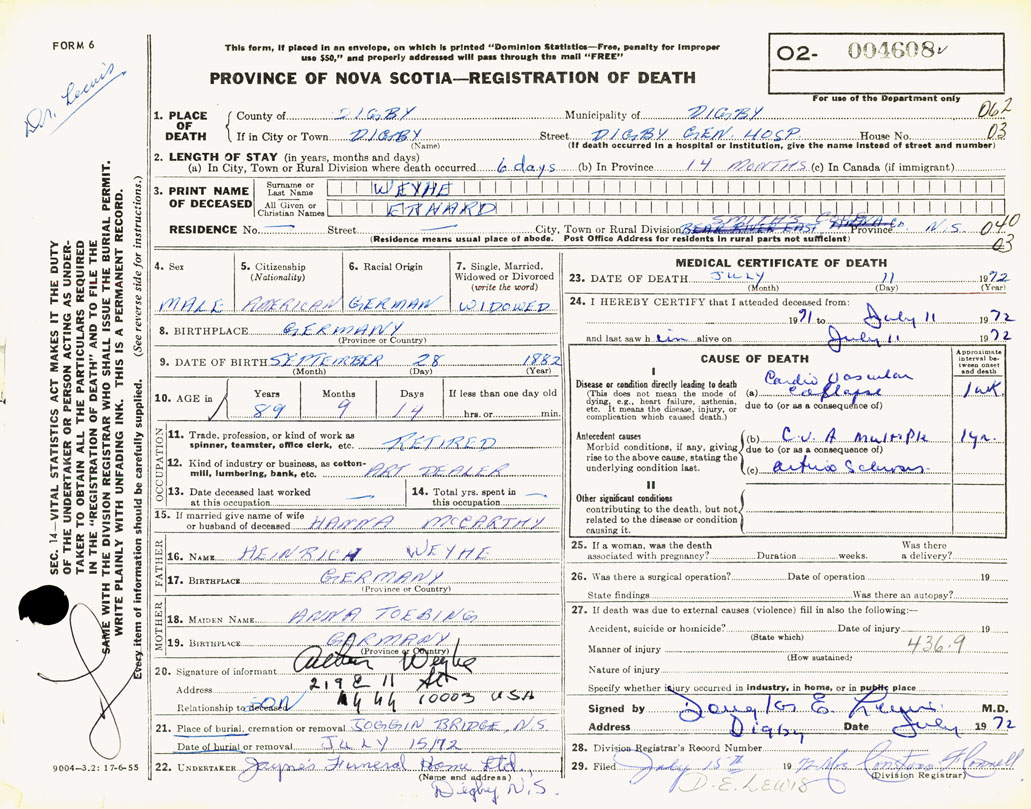 FORM 6
Dr. Lewis
This form, if placed in an envelope, on which is printed "Dominion Statistics—Free, penalty for improper
use $50," and properly addressed will pass through the mail "FREE"
PROVINCE OF NOVA SCOTIA—REGISTRATION OF DEATH
02- 004608
For use of the Department only
1. PLACE OF DEATH
County of DIGBY Municipality of DIGBY 062
If in City or Town DIGBY Street DIGBY GEN. HOSP House No. 03
(Name) (If death occurred in a hospital or institution, give the name instead of street and number)
2. LENGTH OF STAY (in years, months and days)
(a) In City, Town or Rural Division where death occurred 6 days (b) In Province 14 MONTHS (c) In Canada (if immigrant)
3. PRINT NAME OF DECEASED
Surname or Last Name WEYHE
All Given or Christian Names ERHARD
SMITH'S COVE
RESIDENCE No. Street City, Town or Rural Division BEAR RIVER EAST Province N.S. 040
(Residence means usual place of abode. Post Office Address for residents in rural parts not sufficient) 03
4. Sex
MALE
5. Citizenship
(Nationality)
AMERICAN
6. Racial Origin
GERMAN
7. Single, Married, Widowed or Divorced
(write the word)
WIDOWED
8. BIRTHPLACE GERMANY
(Province or Country)
9. DATE OF BIRTH SEPTEMBER 28 1882
(Month) (Day) (Year)
10. AGE in
Years Months Days If less than one day old
89 9 14 hrs. or min.
OCCUPATION
11. Trade, profession, or kind of work as spinner, teamster, office clerk, etc. RETIRED
12. Kind of industry or business, as cotton-mill, lumbering, bank, etc. ART DEALER
13. Date deceased last worked at this occupation
14. Total yrs. spent in this occupation
15. If married give name of wife or husband of deceased HANNA McCARTHY
FATHER
16. NAME HEINRICH WEYHE
17. BIRTHPLACE GERMANY
(Province or Country)
MOTHER
18. MAIDEN NAME ANNA TOEBING
19. BIRTHPLACE GERMANY
(Province or Country)
20. Signature of informant Arthur Weyhe
Address 219 E 11 St
Relationship to deceased SON 10003 USA
21. Place of burial, cremation or removal JOGGIN BRIDGE, N.S.
Date of burial or removal JULY 15/72
22. UNDERTAKER Jayne's Funeral Home Ltd.,
(Name and address)
Digby N.S.
MEDICAL CERTIFICATE OF DEATH
23. DATE OF DEATH JULY 11 1972
(Month) (Day) (Year)
24. I HEREBY CERTIFY that I attended deceased from:
1971 to July 11 1972
and last saw him alive on July 11 1972
CAUSE OF DEATH
Approximate interval between onset and death
I
Disease or condition directly leading to death
(This does not mean the mode of dying, e.g., heart failure, asthenia, etc. It means the disease, injury, or complication which caused death.)
(a) Cardio Vascular Collapse 1 wk
due to (or as a consequence of)
Antecedent causes
Morbid conditions, if any, giving rise to the above cause, stating the underlying condition last.
(b) C.V.A multiple 1 yr.
due to (or as a consequence of)
(c)
II
Other significant conditions
contributing to the death, but not related to the disease or condition causing it.
25. If a woman, was the death associated with pregnancy? Duration weeks. Was there a delivery?
26. Was there a surgical operation? Date of operation 19
State findings Was there an autopsy?
27. If death was due to external causes (violence) fill in also the following:—
Accident, suicide or homicide? Date of injury 19
(State which)
Manner of injury 436.9
(How sustained)
Nature of injury
Specify whether injury occurred in industry, in home, or in public place
Signed by Douglas E. Lewis M.D.
Address Digby Date July 1972
28. Division Registrar's Record Number
29. Filed July 15th 1972
(Division Registrar)
D.E. LEWIS
SEC. 14—VITAL STATISTICS ACT MAKES IT THE DUTY
OF THE UNDERTAKER OR PERSON ACTING AS UNDER-
TAKER TO OBTAIN ALL THE PARTICULARS REQUIRED
IN THE "REGISTRATION OF DEATH" AND TO FILE THE
SAME WITH THE DIVISION REGISTRAR WHO SHALL ISSUE THE BURIAL PERMIT.
WRITE PLAINLY WITH UNFADING INK. THIS IS A PERMANENT RECORD.
Every item of information should be carefully supplied. (See reverse side for instructions.)
9004-3.2: 17-6-55